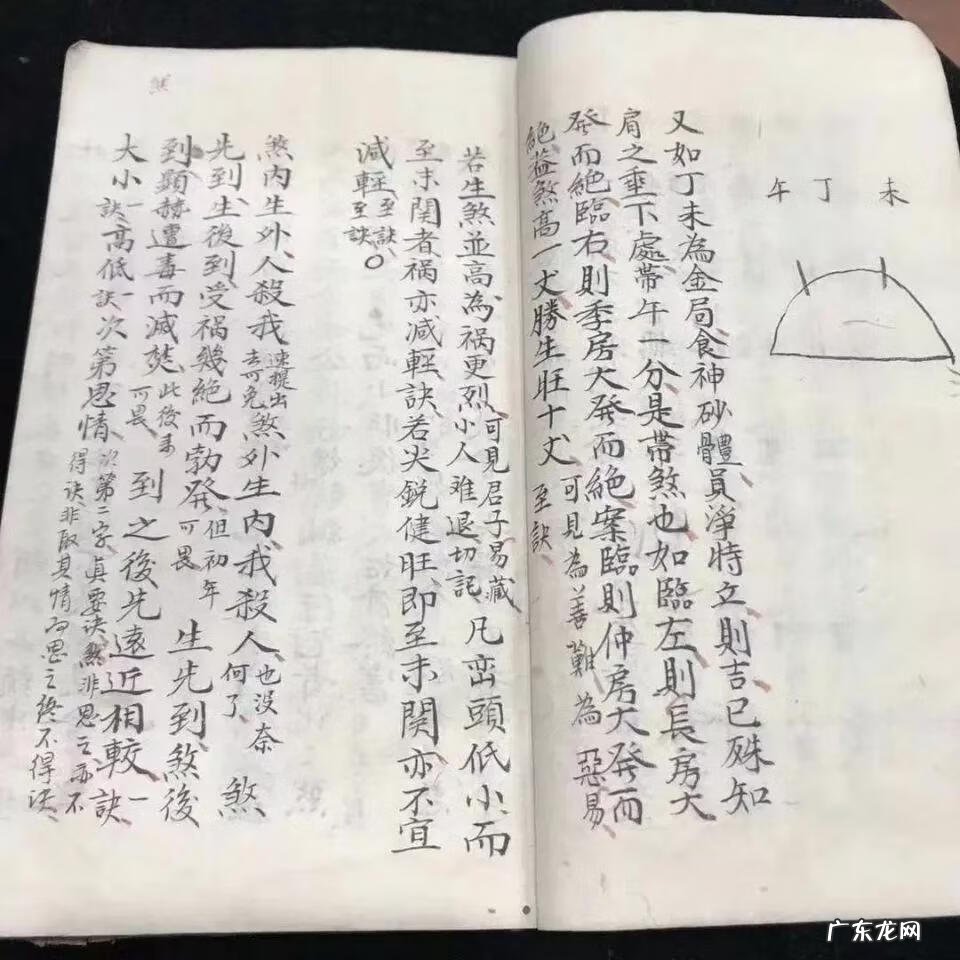 午 丁 未
又如丁未為金局食神砂體員淨特立則吉已殊知
肩之垂下處帶午一分是帶煞也如臨左則長房大
發而絕臨右則季房大發而絕案臨則仲房大發而
絕益煞高一丈勝生旺十丈 可見為善難為惡易 至訣
若生煞並高為禍更烈 可見君子易藏 小人难退切記 凡峦頭低小而
至未関者禍亦减輕訣若尖銳健旺即至未関亦不宜
減輕 至訣 至訣 〇
煞
煞内生外人殺我 速提出 去可免 煞外生内我殺人 也没奈 何了 煞
先到生後到受禍幾絕而勃發 但初年 可畏 生先到煞後
到顯赫遭毒而滅 此後来 可畏 到之後先遠近相較一訣
大小一訣高低一訣次第思情 次第二字真要訣煞非思之亦不
得訣非取其情而思之終不得訣
廣东龙网